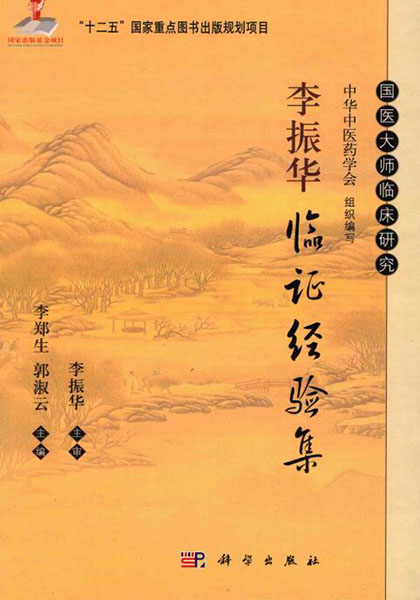 国家出版基金项目
“十二五”国家重点图书出版规划项目
国医大师临床研究
中华中医药学会 组织编写
李振华
临证经验集
李振华 主审
李郑生 郭淑云 主编
SP
科学出版社